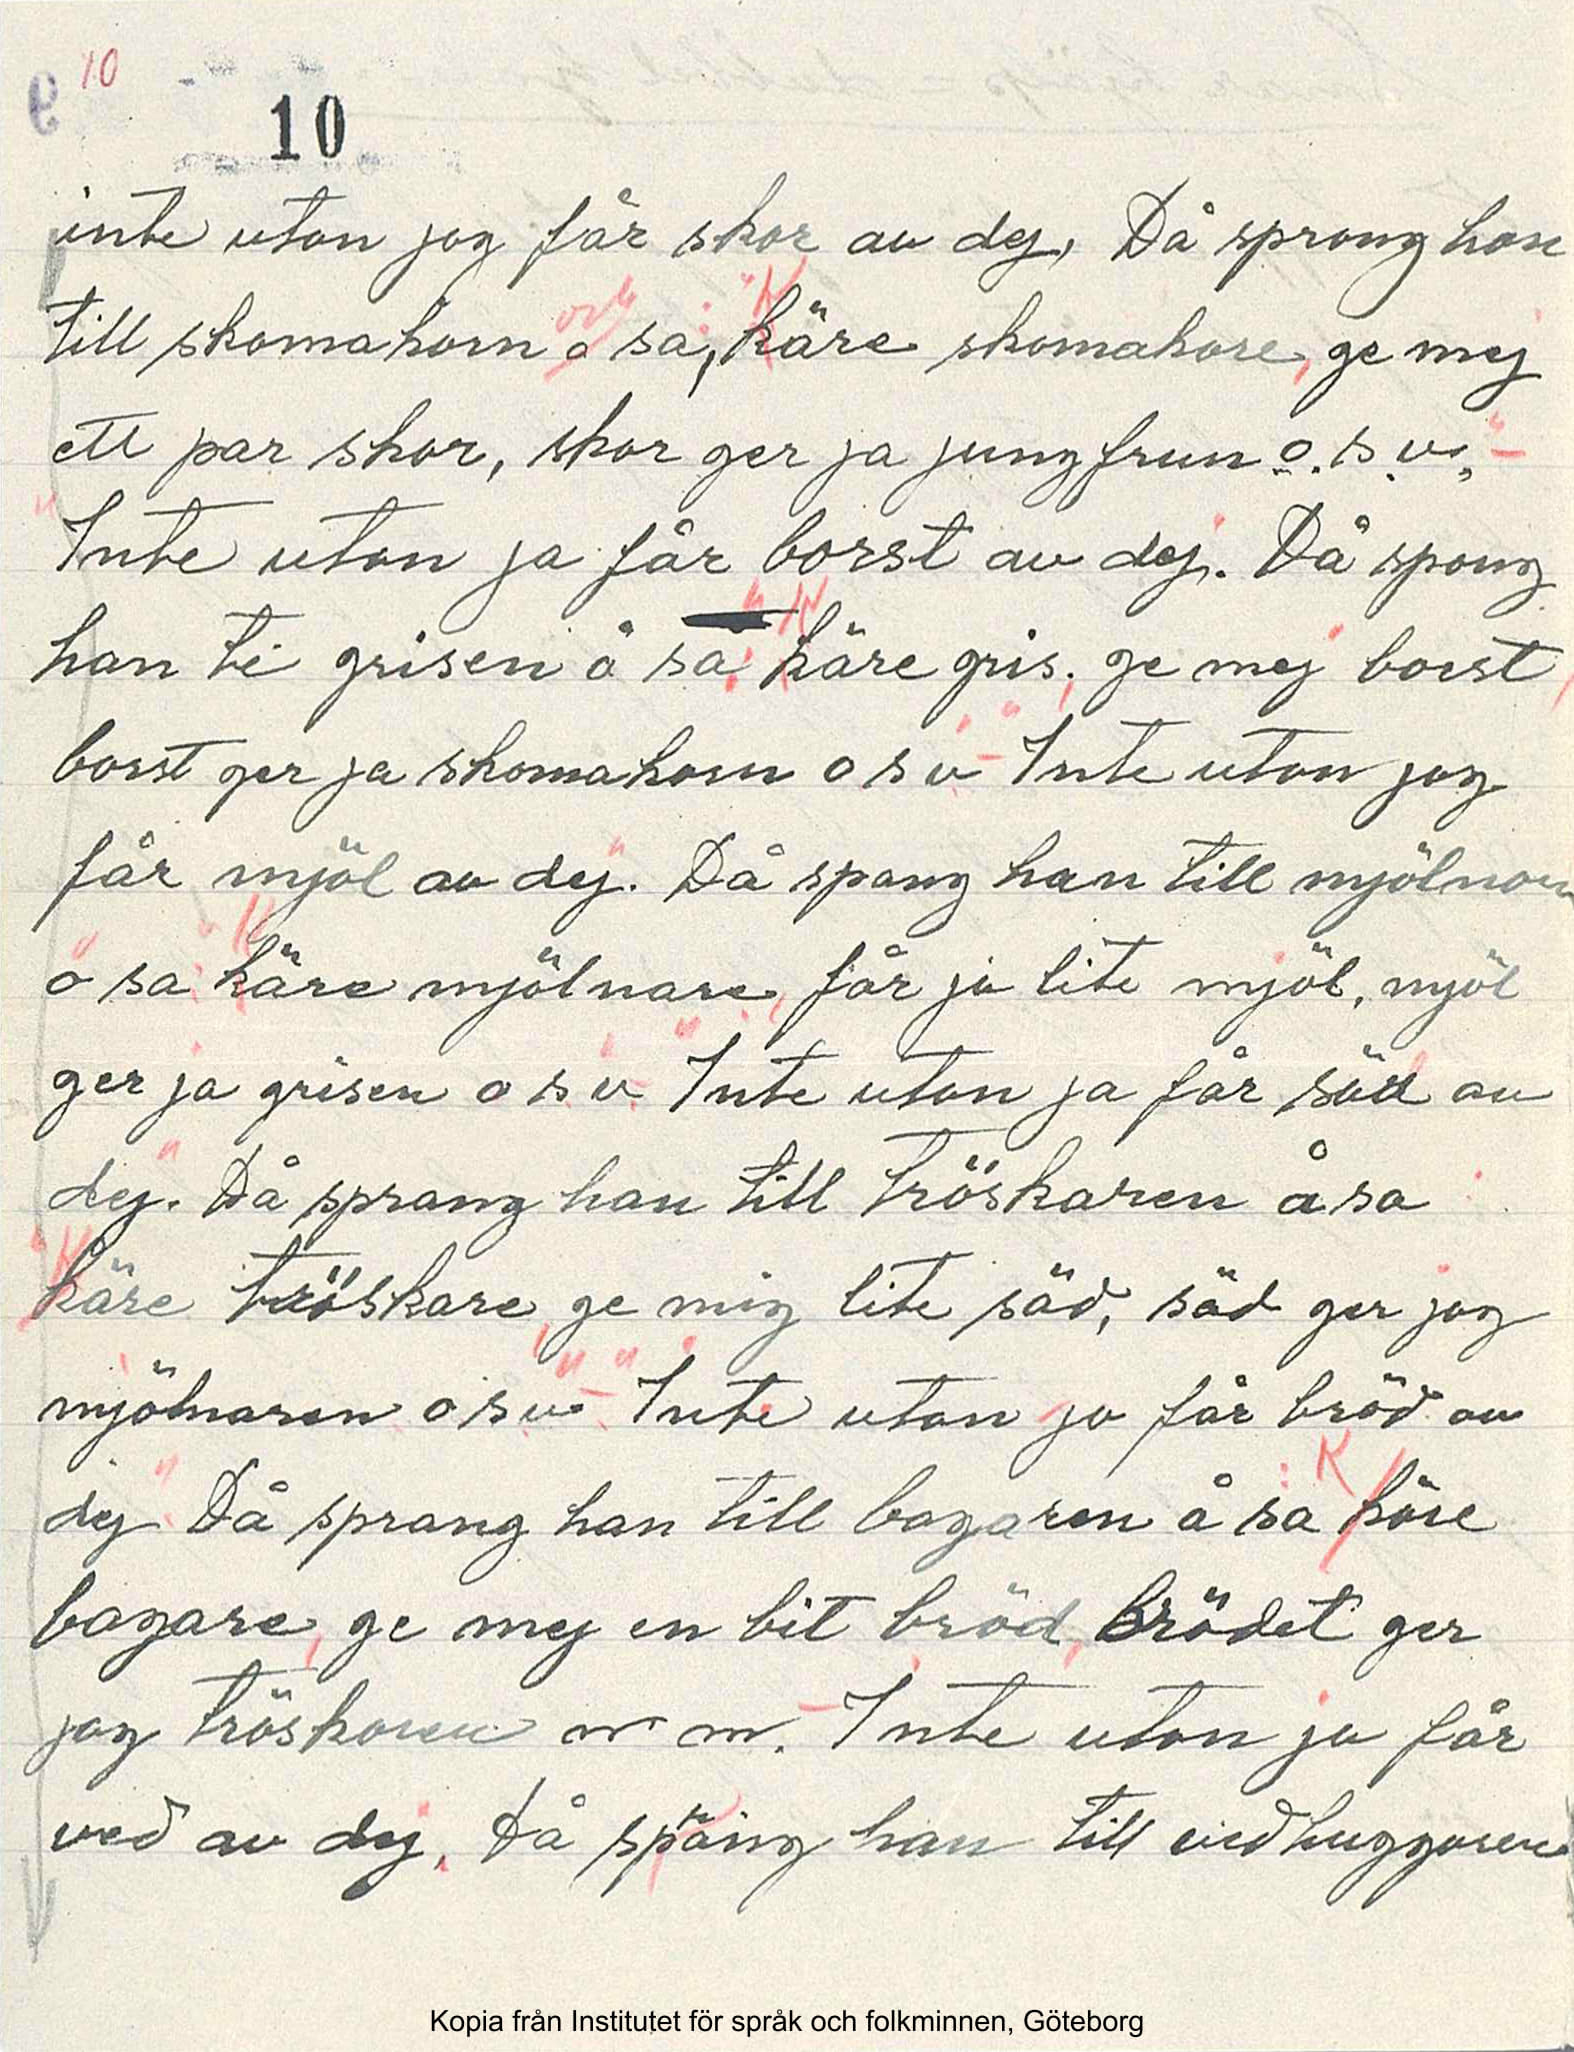 10
10
inte utan jag får skor av dej, Då sprang han
till skomakarn o sa, käre skomakare, ge mej
ett par skor, skor ger ja jungfrun o. s. v.,
"Inte utan ja får borst av dej. Då spang
han te grisen å sa: "Käre gris, ge mej borst,
borst ger ja skomakarn o s v" – Inte utan jag
får mjöl av dej". Då spang han till mjölnarn
ö sa: "Käre mjölnare, får ja lite mjöl, mjöl
ger ja grisen o s v" – "Inte utan ja får säd av
dej". Då sprang han till tröskaren å sa:
"Käre tröskare, ge mig lite säd, säd ger jag
mjölnaren o s v." – "Inte utan ja får bröd av
dej". Då sprang han till bagaren å sa: Käre
bagare, ge mej en bit bröd, brödet ger
jag tröskaren m m. – Inte utan ja får
ved av dej. Då sprang han till vedhuggaren
Kopia från Institutet för språk och folkminnen, Göteborg